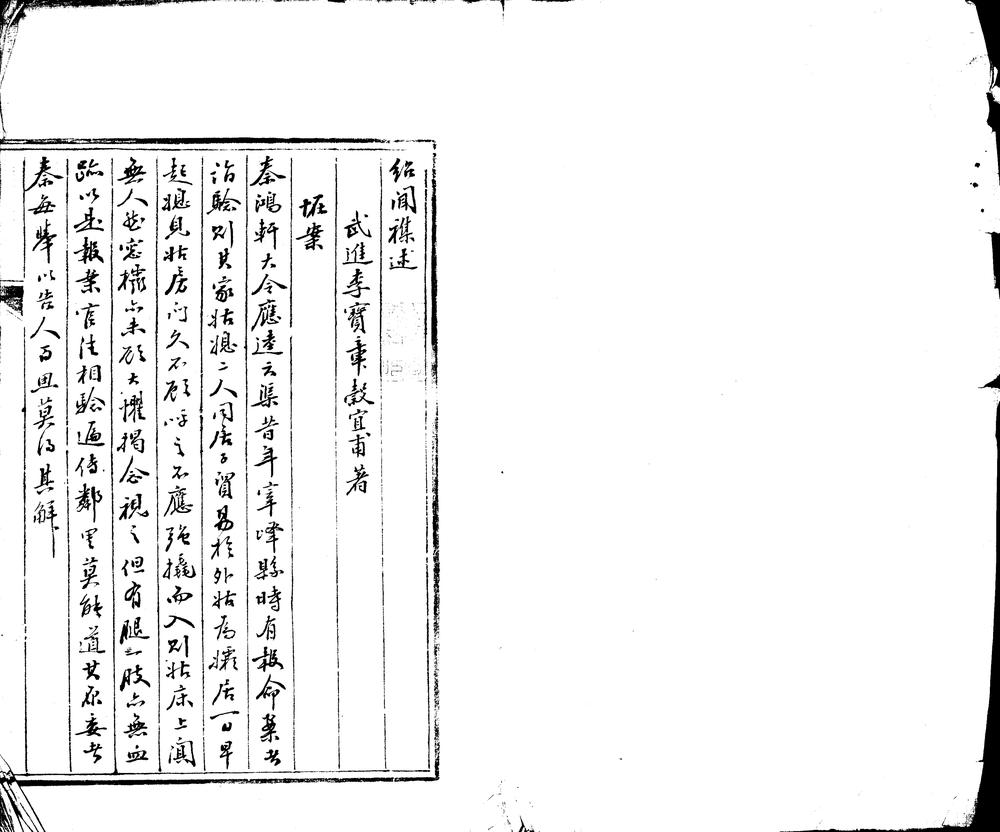 紹聞襍述
武進李寶章穀宜甫著
怪案
秦鴻軒大令應逵云渠昔年宰嶧縣時有報命案者
詣驗則其家姑媳二人同居子貿易於外姑爲孀居一日早
起媳見姑房門久不啟呼之不應强撬而入則姑床上闃
無人然窓櫺亦未啟大懼揭衾視之但有腿一肢亦無血
跡以是報案官往相驗遍傳鄰里莫能道其原委者
秦每舉以告人百思莫得其解